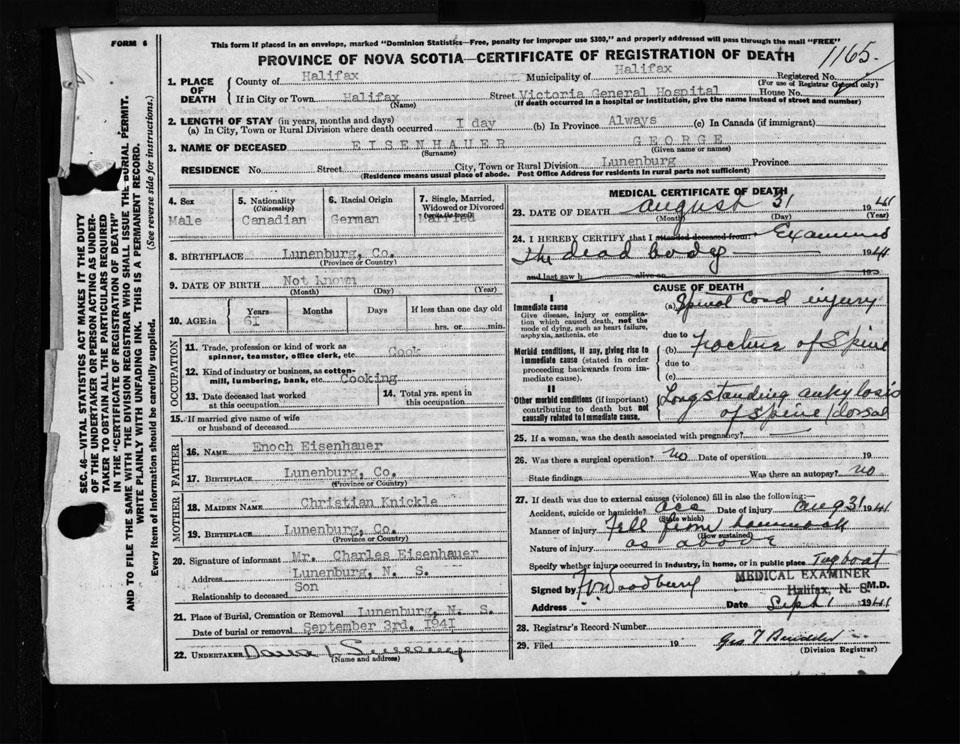 FORM 6
This form if placed in an envelope, marked "Dominion Statistics—Free, penalty for improper use $300," and properly addressed will pass through the mail "FREE"
PROVINCE OF NOVA SCOTIA—CERTIFICATE OF REGISTRATION OF DEATH
1165
SEC. 46—VITAL STATISTICS ACT MAKES IT THE DUTY
OF THE UNDERTAKER OR PERSON ACTING AS UNDER-
TAKER TO OBTAIN ALL THE PARTICULARS REQUIRED
IN THE "CERTIFICATE OF REGISTRATION OF DEATH"
AND TO FILE THE SAME WITH THE DIVISION REGISTRAR WHO SHALL ISSUE THE BURIAL PERMIT.
WRITE PLAINLY WITH UNFADING INK. THIS IS A PERMANENT RECORD.
Every item of information should be carefully supplied. (See reverse side for instructions.)
1. PLACE OF DEATH
County of Halifax Municipality of Halifax Registered No.
(For use of Registrar General only)
If in City or Town Halifax Street Victoria General Hospital House No.
(Name) (If death occurred in a hospital or institution, give the name instead of street and number)
2. LENGTH OF STAY (in years, months and days)
(a) In City, Town or Rural Division where death occurred I day (b) In Province Always (c) In Canada (if immigrant)
3. NAME OF DECEASED EISENHAUER GEORGE
(Surname) (Given name or names)
RESIDENCE No. Street City, Town or Rural Division Lunenburg Province
(Residence means usual place of abode. Post Office Address for residents in rural parts not sufficient)
4. Sex 5. Nationality (Citizenship) 6. Racial Origin 7. Single, Married, Widowed or Divorced (write the word)
Male Canadian German Married
8. BIRTHPLACE Lunenburg, Co.
(Province or Country)
9. DATE OF BIRTH Not known
(Month) (Day) (Year)
10. AGE in Years Months Days If less than one day old
61 hrs. or min.
OCCUPATION
11. Trade, profession or kind of work as
spinner, teamster, office clerk, etc. Cook
12. Kind of industry or business, as cotton-
mill, lumbering, bank, etc. Cooking
13. Date deceased last worked
at this occupation
14. Total yrs. spent in
this occupation
15. If married give name of wife
or husband of deceased
FATHER
16. NAME Enoch Eisenhauer
17. BIRTHPLACE Lunenburg, Co.
(Province or Country)
MOTHER
18. MAIDEN NAME Christian Knickle
19. BIRTHPLACE Lunenburg, Co.
(Province or Country)
20. Signature of informant Mr. Charles Eisenhauer
Address Lunenburg, N. S.
Relationship to deceased Son
21. Place of Burial, Cremation or Removal Lunenburg, N. S.
Date of burial or removal September 3rd. 1941
22. UNDERTAKER
(Name and address)
MEDICAL CERTIFICATE OF DEATH
23. DATE OF DEATH August 31 1941
(Month) (Day) (Year)
24. I HEREBY CERTIFY that I attended deceased from: Examined
the dead body 1941
and last saw h alive on 19
CAUSE OF DEATH
I
Immediate cause
Give disease, injury or complica-
tion which caused death, not the
mode of dying, such as heart failure,
asphyxia, asthenia, etc
(a) Spinal Cord injury
due to
Morbid conditions, if any, giving rise to
immediate cause (stated in order
proceeding backwards from im-
mediate cause).
(b) Fracture of Spine
due to
(c)
II
Other morbid conditions (if important)
contributing to death but not
causally related to immediate cause.
Long standing ankylosis
of spine/dorsal
25. If a woman, was the death associated with pregnancy?
26. Was there a surgical operation? No Date of operation 19
State findings Was there an autopsy? No
27. If death was due to external causes (violence) fill in also the following:
Accident, suicide or homicide? acc Date of injury Aug 31 1941
(State which)
Manner of injury Fell from hammock
(How sustained)
Nature of injury as above
Specify whether injury occurred in industry, in home, or in public place Tugboat
Signed by Woodbury M.D.
MEDICAL EXAMINER
Halifax, N. S.
Address Date Sept 1 1941
28. Registrar's Record Number
29. Filed 19
(Division Registrar)